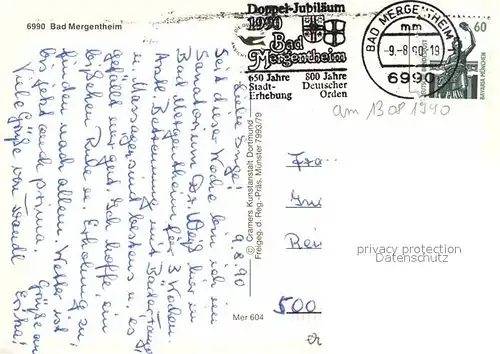 6990 Bad Mergentheim
Doppel-Jubiläum
1990
Bad
Mergentheim
650 Jahre
Stadt-
Erhebung
800 Jahre
Deutscher
Orden
BAD MERGENTHEIM
mm
-9.-8.90-19
6990
60
BAYARIA MÜNCHEN
am 13 08 1990
9.8.90
Liebe Inge!
Seit dieser Woche bin ich im
Sanatorium Dr. Weiß hier in
Bad Mergentheim für 3 Wochen.
Ärztl. Betreuung mit Bädern
u. Massagen sind bestens u. es
gefällt mir gut. Ich hoffe, ein
bißchen Ruhe u. Erholung zu
finden nach allem. Wetter ist
bis jetzt auch prima.
Viele Grüße von
Grüße an
Erika!
© Cramers Kunstanstalt Dortmund
Freigeg. d. Reg.-Präs. Münster 7993/79
Mer 604
Fra
In
Rei
privacy protection
Veronikas
500